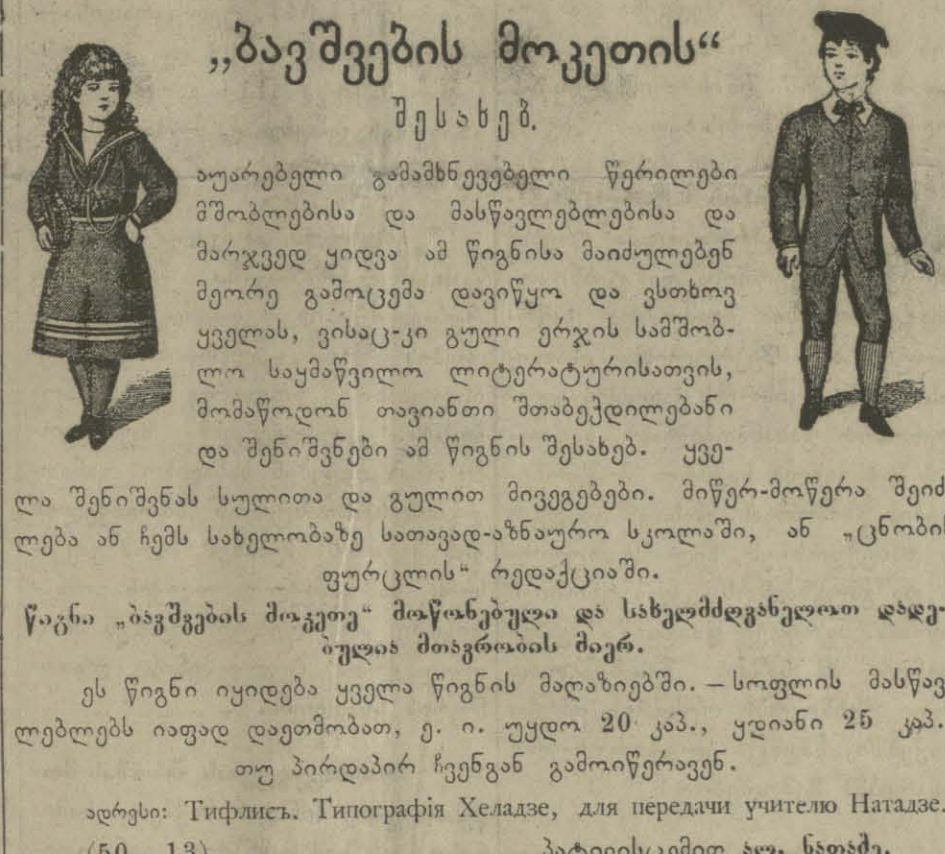 „ბავშვების მოკეთის“
შესახებ.
აუარებელი გამამხნევებელი წერილები
მშობლებისა და მასწავლებლებისა და
მარჯვედ ყიდვა ამ წიგნისა მაიძულებენ
მეორე გამოცემა დავიწყო და ვსთხოვ
ყველას, ვისაც-კი გული ერჯის სამშობ-
ლო საყმაწვილო ლიტერატურისათვის,
მომაწოდონ თავიანთი შთაბეჭდილებანი
და შენიშვნები ამ წიგნის შესახებ. ყვე-
ლა შენიშვნას სულითა და გულით მივეგებები. მიწერ-მოწერა შეიძ
ლება ან ჩემს სახელობაზე სათავად-აზნაურო სკოლაში, ან „ცნობის
ფურცლის“ რედაქციაში.
წიგნი „ბავშვების მოკეთე“ მოწონებული და სახელმძღვანელოთ დადე-
ბულია მთავრობის მიერ.
ეს წიგნი იყიდება ყველა წიგნის მაღაზიებში. — სოფლის მასწავ
ლებლებს იაფად დაეთმობათ, ე. ი. უყდო 20 კაპ., ყდიანი 25 კაპ.
თუ პირდაპირ ჩვენგან გამოიწერავენ.
ადრესი: Тифлисъ. Типографія Хеладзе, для передачи учителю Натадзе.
(50—13) პატივისცემით ალ. ნათაძე.